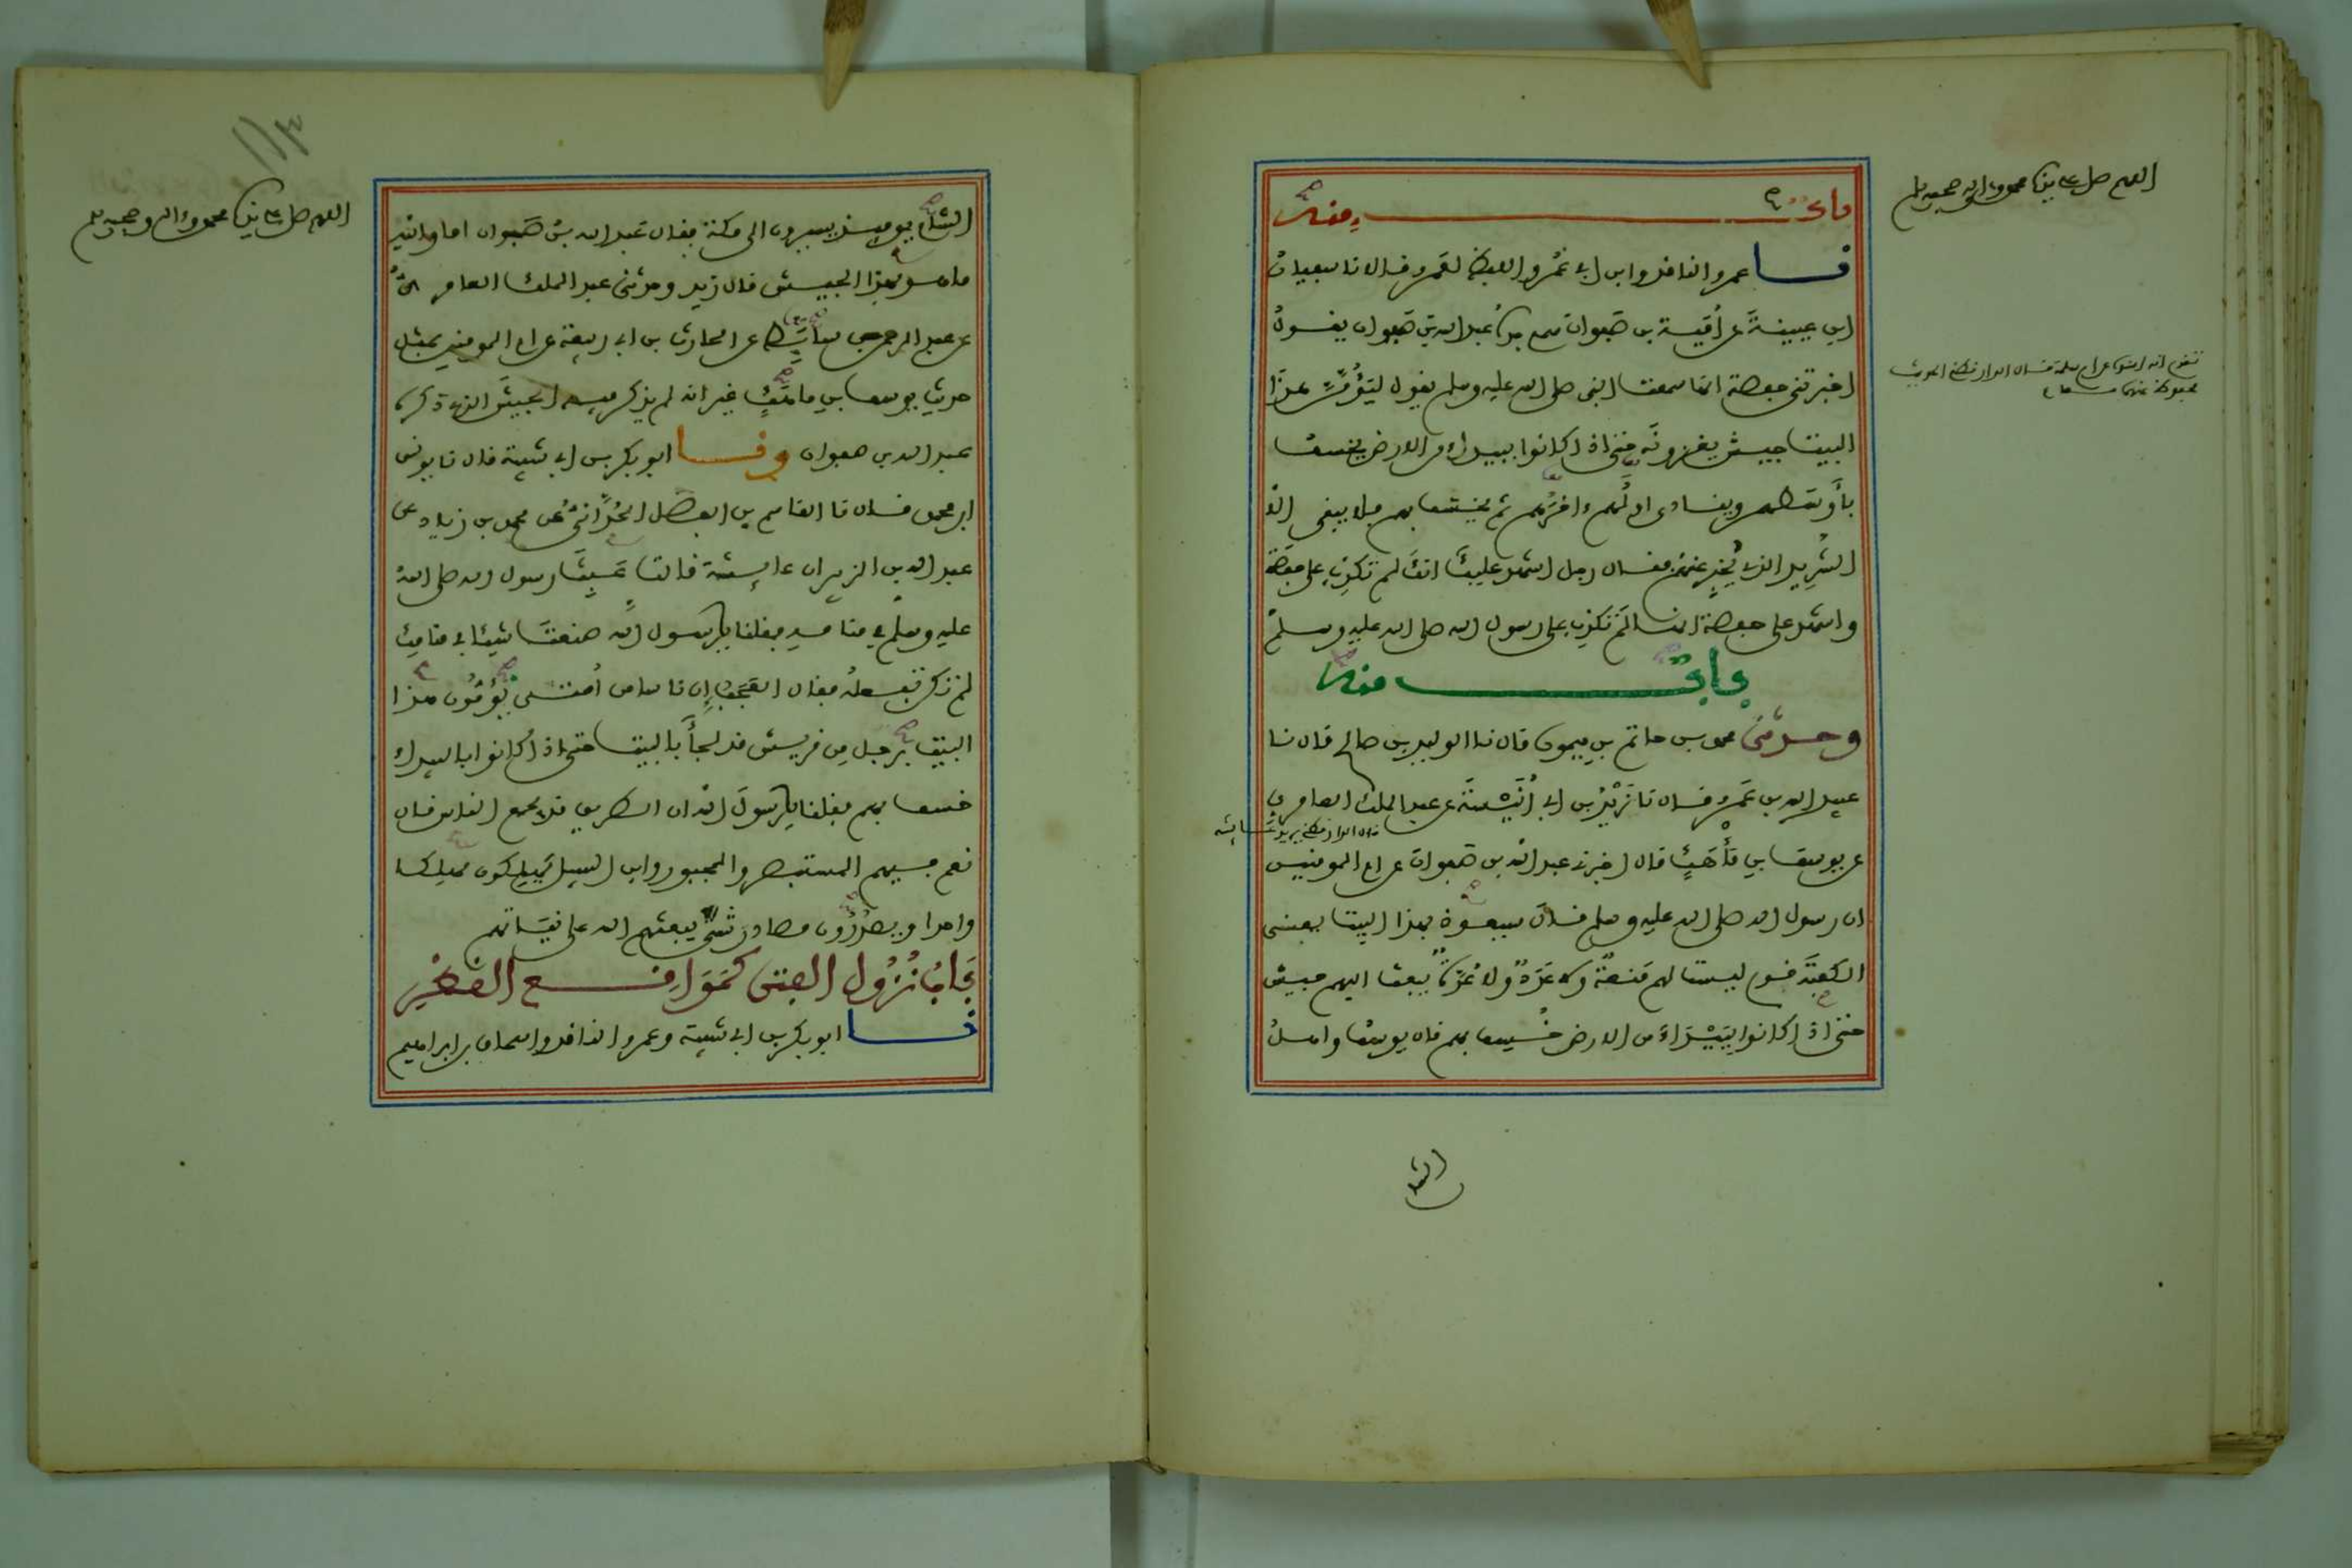 اللهم صل على سيدنا محمد وءاله وصحبه وسلم
باب منه
نا عمرو الناقد وابن ابي عمر واللفظ لعمرو قالا نا سفيان
ابن عيينة عن أمية بن صفوان سمع جده عبد الله بن صفوان يقول
اخبرتني حفصة انها سمعت النبي صلى الله عليه وسلم يقول ليؤمّنّ هذا
البيت جيش يغزونه حتى اذا كانوا ببيداء من الارض يخسف
بأوسطهم وينادي اولهم ءاخرهم ثم يخسف بهم فلا يبقى الا
الشريد الذي يخبر عنهم فقال رجل اشهد عليك انك لم تكذب على حفصة
واشهد على حفصة انها لم تكذب على رسول الله صلى الله عليه وسلم
باب منه
وحدثني محمد بن حاتم بن ميمون قال نا الوليد بن صالح قال نا
عبيد الله بن عمرو قال نا زيد بن ابي أنيسة عن عبد الملك العامري
عن يوسف بن مأهك قال اخبرني عبد الله بن صفوان عن ام المومنين
ان رسول الله صلى الله عليه وسلم قال سيعوذ بهذا البيت يعني
الكعبة قوم ليست لهم منعة ولا عدد ولا عدة يبعث اليهم جيش
حتى اذا كانوا ببيداء من الارض خسف بهم قال يوسف واهل
الشام
اللهم صل على سيدنا محمد وءاله وصحبه وسلم
الشام يومئذ يسيرون الى مكة فقال عبد الله بن صفوان اما والله
ما هو بهذا الجيش قال زيد وحدثني عبد الملك العامري
عن عبد الرحمن بن سابط عن الحارث بن ابي ربيعة عن ام المومنين بمثل
حديث يوسف بن ماهك غير انه لم يذكر فيه الجيش الذي ذكره
عبد الله بن صفوان ونا ابو بكر بن ابي شيبة قال نا يونس
ابن محمد قال نا القاسم بن الفضل الحداني عن محمد بن زياد عن
عبد الله بن الزبير ان عايشة قالت عبث رسول الله صلى الله
عليه وسلم في منامه فقلنا يا رسول الله صنعت شيئا في منامك
لم تكن تفعله فقال العجب إن ناسا من أمتي يؤمون هذا
البيت برجل من قريش قد لجأ بالبيت حتى اذا كانوا بالبيداء
خسف بهم فقلنا يا رسول الله ان الطريق قد يجمع الناس قال
نعم فيهم المستبصر والمجبور وابن السبيل يهلكون مهلكا
واحدا ويصدرون مصادر شتى يبعثهم الله على نياتهم
باب نزول الفتن كمواقع القطر
نا ابو بكر بن ابي شيبة وعمرو الناقد واسحاق بن ابراهيم